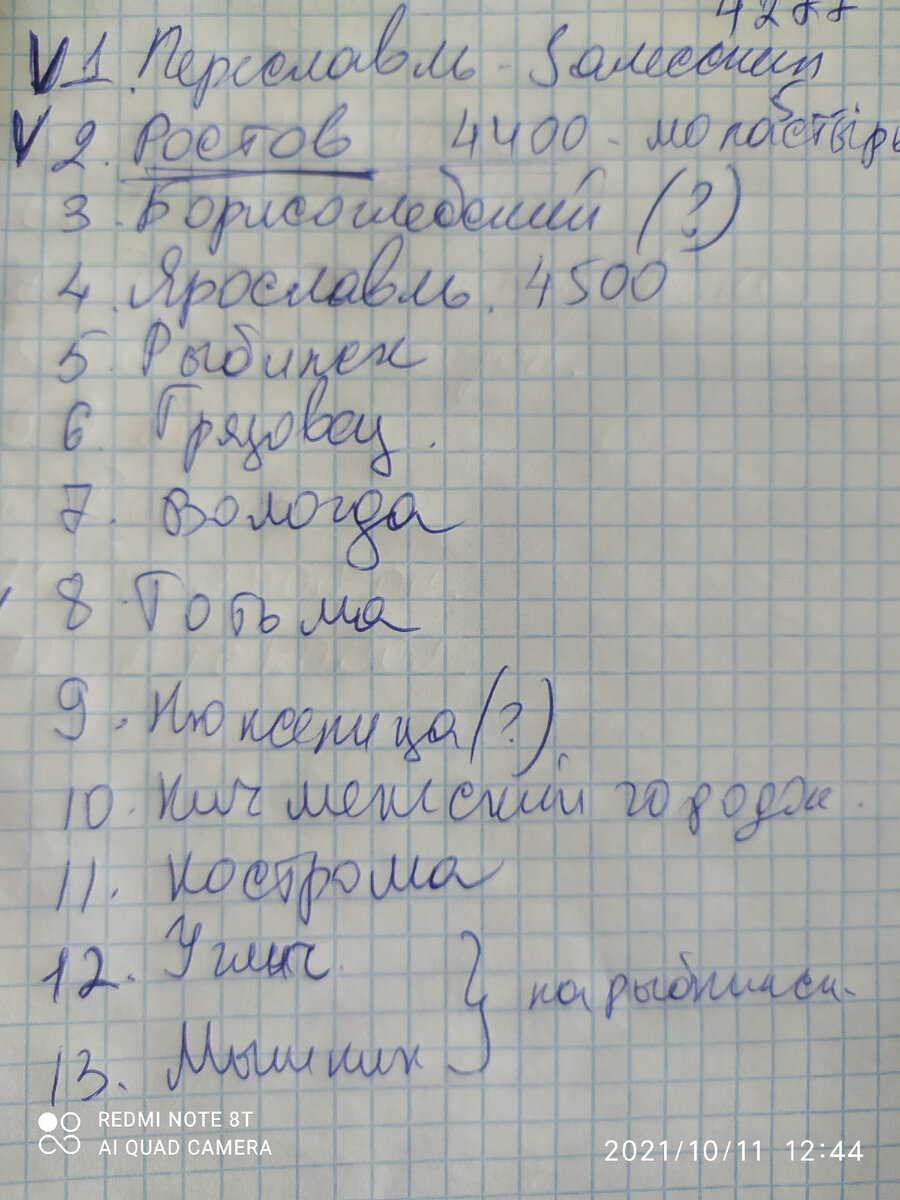 V 1. Переславль-Залесский
V 2. Ростов 4400 - монастырь
3. Борисоглебский (?)
4. Ярославль. 4500
5. Рыбинск
6. Грязовец.
7. Вологда
8. Тотьма
9. Нюксеница (?)
10. Кичменский городок.
11. Кострома
12. Углич.
13. Мышкин
} на рыбинск.
REDMI NOTE 8T
AI QUAD CAMERA
2021/10/11 12:44